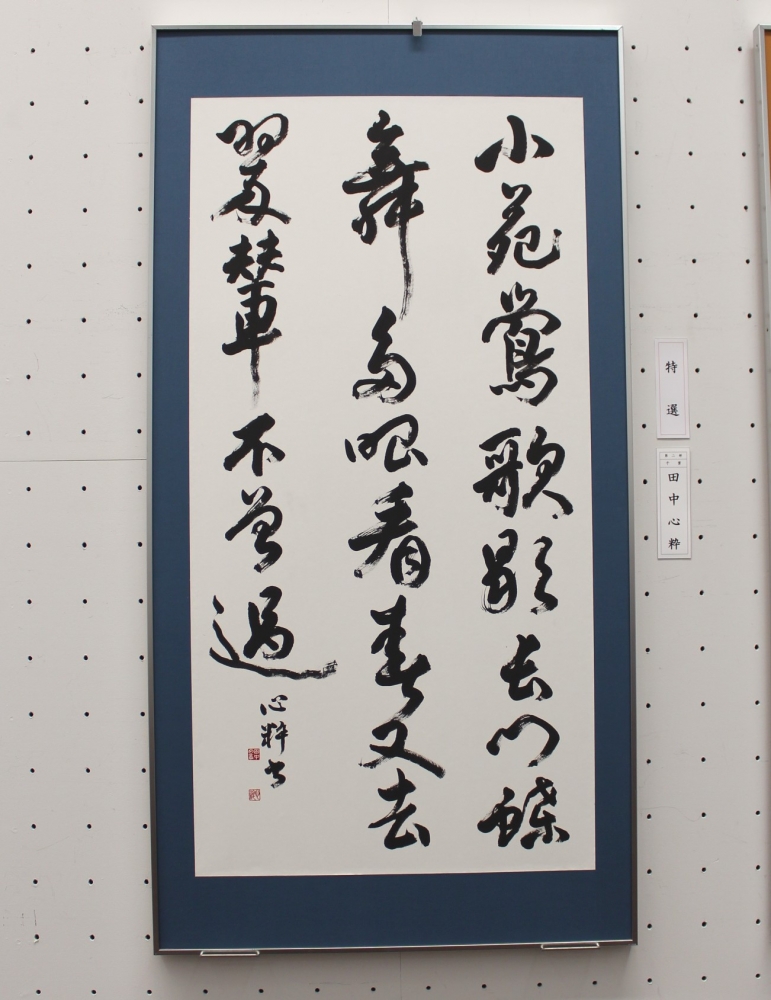 小苑鶯歌歇長門蝶
舞多眼看春又去
翠輦不曾過
心粹書
特選
田中心粹